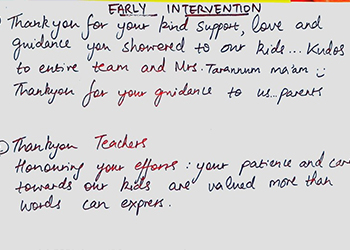 EARLY INTERVENTION
Thankyou for your kind support, love and
guidance you showered to our kids... Kudos
to entire team and Mrs. Tarannum ma'am
Thankyou for your guidance to us...parents
Thankyou Teachers
Honouring your efforts: your patience and care
towards our kids are valued more than
words can express.